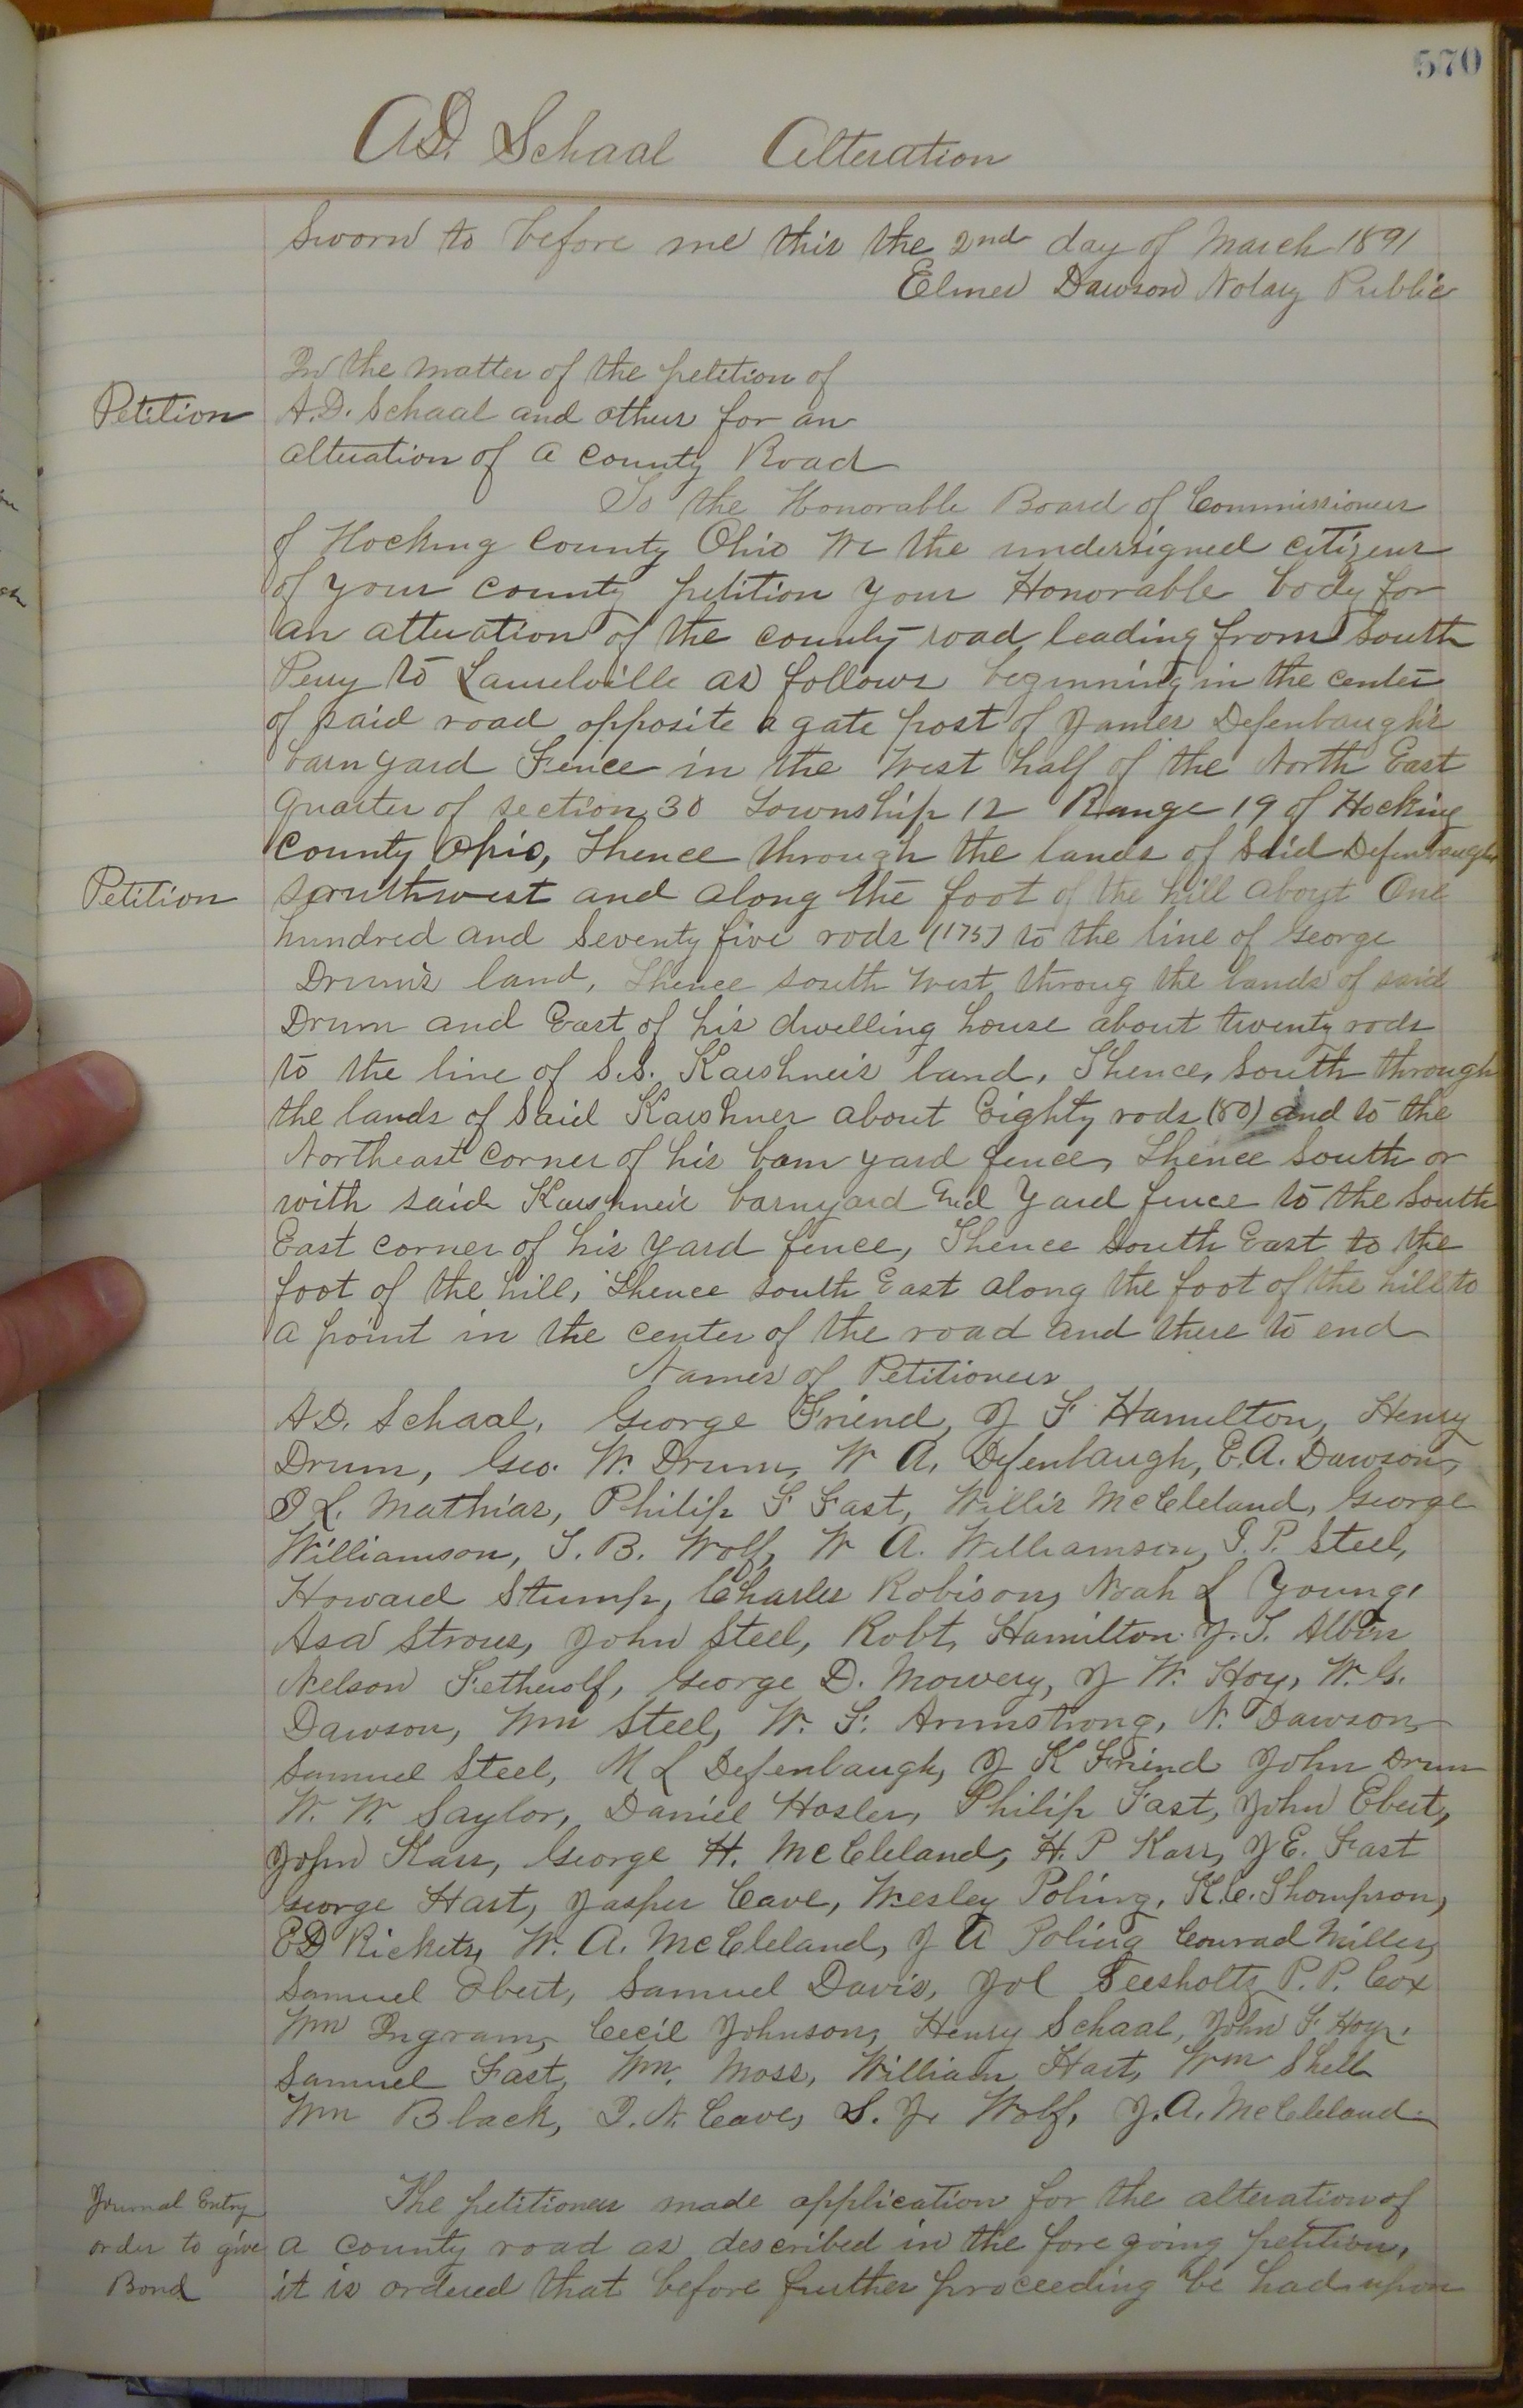 570
A.D. Schaal Alteration
Sworn to before me this the 2nd day of March 1891
Elmer Dawson Notary Public
In the matter of the petition of
Petition A.D. Schaal and others for an
alteration of a County Road
To the Honorable Board of Commissioners
of Hocking County Ohio We the undersigned citizens
of your county petition your Honorable body for
an alteration of the county road leading from South
Perry to Laurelville as follows beginning in the center
of said road opposite a gate post of James Defenbaugh's
barn yard Fence in the West half of the North East
Quarter of section 30 Township 12 Range 19 of Hocking
County Ohio, Thence through the lands of said Defenbaugh
Petition southwest and along the foot of the hill about One
hundred and Seventy five rods (175) to the line of George
Drum's land, Thence south west throug the lands of said
Drum and East of his dwelling house about twenty rods
to the line of S.S. Karshner's land, Thence, South through
the lands of Said Karshner about Eighty rods (80) and to the
Northeast corner of his barn yard fence, Thence South or
with said Karshner's barnyard and Yard fence to the South
East corner of his yard fence, Thence South East to the
foot of the hill, Thence South East along the foot of the hill to
a point in the center of the road and there to end
Names of Petitioners
A.D. Schaal, George Friend, J F Hamilton, Henry
Drum, Geo. W. Drum, W A, Defenbaugh, E.A. Dawson,
L. Mathias, Philip F Fast, Willis McCleland, George
Williamson, S. B. Wolf, W A. Williamson, I. P. Steel,
Howard Stump, Charles Robison, Noah L Young,
Asa Strous, John Steel, Robt, Hamilton J. T. Albin
Nelson Fetherolf, George D. Mowery, J W. Hoy, W. G.
Dawson, Wm Steel, W. F. Armstrong, N. Dawson
Samuel Steel, M L Defenbaugh, J K Friend John Drum
W. W. Saylor, Daniel Hosler, Philip Fast, John Ebert,
John Karr, George H. McCleland, H. P Karr, J E. Fast
George Hart, Jasper Cave, Wesley Poling, K.C. Thompson,
E D Rickets, W. A. McCleland, J A Poling Conrad Miller,
Samuel Ebert, Samuel Davis, Jol Seesholtz P. P. Cox
Wm Ingram, Cecil Johnson, Henry Schaal, John F Hoy,
Samuel Fast, Wm, Moss, William Hart, Wm Shell
Wm Black, I. N. Cave, S. J. Wolf, J. A. McCleland
Journal Entry The petitioners made application for the alteration of
order to give a county road as described in the fore going petition,
Bond it is ordered that before further proceeding be had upon